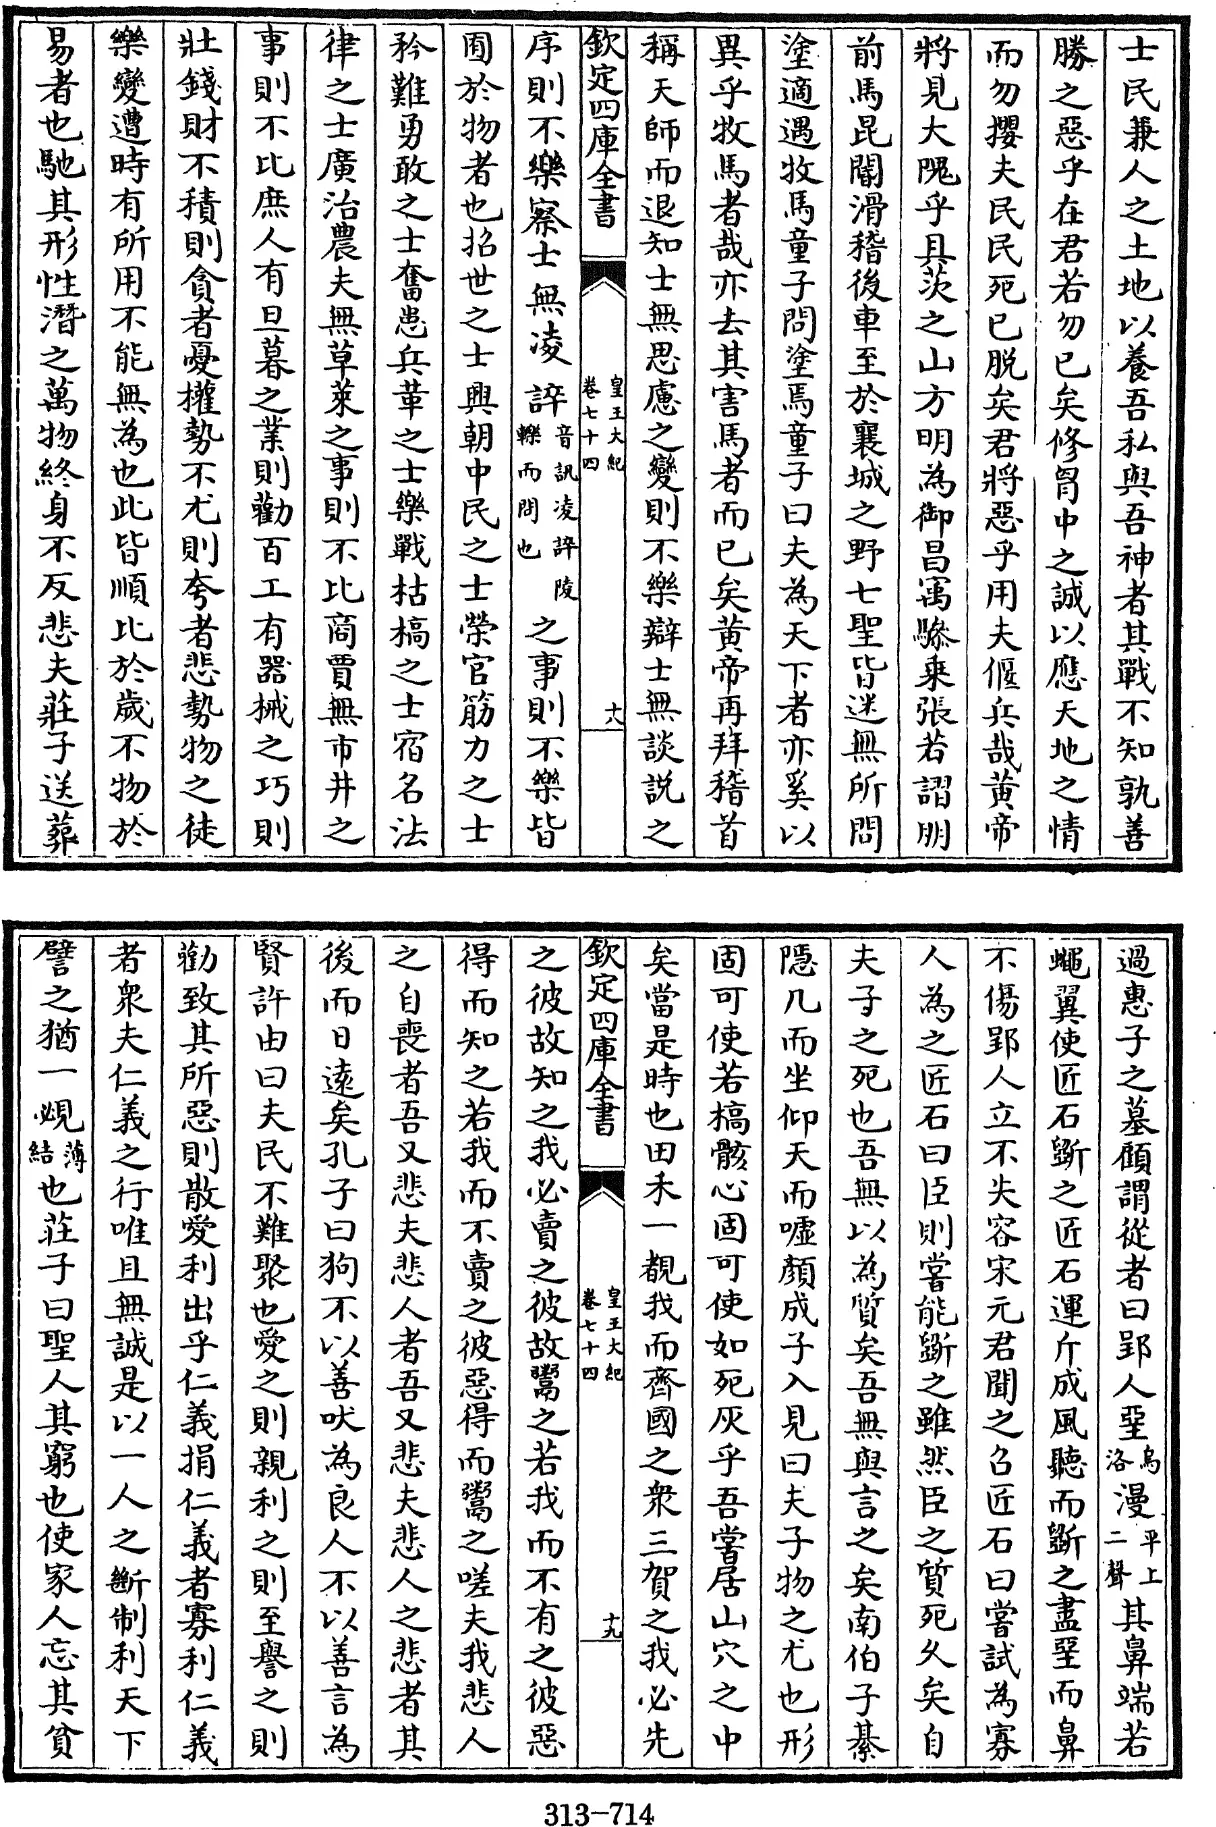 士民兼人之土地以養吾私與吾神者其戰不知孰善
勝之惡乎在君若勿已矣修胷中之誠以應天地之情
而勿攖夫民民死已脱矣君將惡乎用夫偃兵哉黄帝
將見大隗乎具茨之山方明為御昌㝢驂乗張若謵朋
前馬昆閽滑稽後車至於襄城之野七聖皆迷無所問
塗適遇牧馬童子問塗焉童子曰夫為天下者亦奚以
異乎牧馬者哉亦去其害馬者而已矣黄帝再拜稽首
稱天師而退知士無思慮之變則不樂辯士無談説之
欽定四庫全書
皇王大紀
卷七十四
十八
序則不樂察士無凌誶音訊凌誶陵轢而問也之事則不樂皆
囿於物者也招世之士興朝中民之士榮官筋力之士
矜難勇敢之士奮患兵革之士樂戰枯槁之士宿名法
律之士廣治農夫無草萊之事則不比商賈無市井之
事則不比庶人有旦暮之業則勸百工有器械之巧則
壯錢財不積則貪者憂權勢不尤則夸者悲勢物之徒
樂變遭時有所用不能無為也此皆順比於歲不物於
易者也馳其形性潛之萬物終身不反悲夫莊子送葬
過惠子之墓顧謂從者曰郢人堊烏洛漫平上二聲其鼻端若
蠅翼使匠石斵之匠石運斤成風聽而斵之盡堊而鼻
不傷郢人立不失容宋元君聞之召匠石曰嘗試為寡
人為之匠石曰臣則嘗能斵之雖然臣之質死久矣自
夫子之死也吾無以為質矣吾無與言之矣南伯子綦
隱几而坐仰天而噓顏成子入見曰夫子物之尤也形
固可使若槁骸心固可使如死灰乎吾嘗居山穴之中
矣當是時也田禾一覩我而齊國之衆三賀之我必先
欽定四庫全書
皇王大紀
卷七十四
十九
之彼故知之我必賣之彼故鬻之若我而不有之彼惡
得而知之若我而不賣之彼惡得而鬻之嗟夫我悲人
之自喪者吾又悲夫悲人者吾又悲夫悲人之悲者其
後而日遠矣孔子曰狗不以善吠為良人不以善言為
賢許由曰夫民不難聚也愛之則親利之則至譽之則
勸致其所惡則散愛利出乎仁義捐仁義者寡利仁義
者衆夫仁義之行唯且無誠是以一人之斷制利天下
譬之猶一覕薄結也莊子曰聖人其窮也使家人忘其貧
313-714